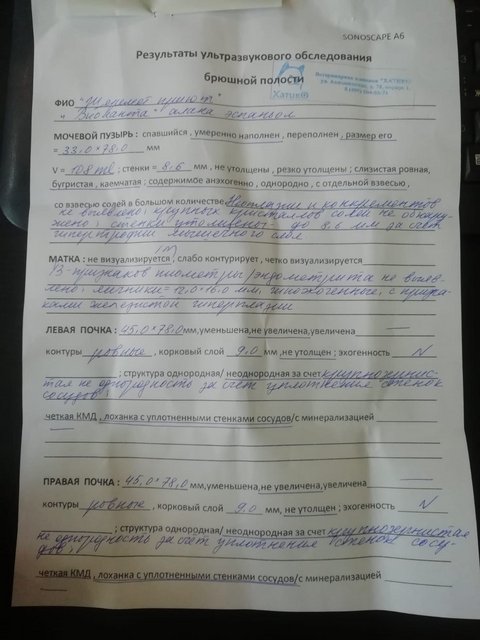 SONOSCAPE A6
Результаты ультразвукового обследования
брюшной полости
Ветеринарная клиника "ХАТИКО"
Хатико
ФИО "Шелемет приют"
"Виоланта" алана эспаньол
МОЧЕВОЙ ПУЗЫРЬ : спавшийся , умеренно наполнен , переполнен , размер его
= 33,0*78,0 мм
V = 108 ml ; стенки = 8,6 мм , не утолщены , резко утолщены ; слизистая ровная,
бугристая , каемчатая ; содержимое анэхогенно , однородно , с отдельной взвесью ,
со взвесью солей в большом количестве Неоплазии и конкрементов
не выявлено; крупных кристаллов солей не обнару-
жено; стенки утолщены до 8,6 мм за счет
гипертрофии мышечного слоя
МАТКА : не визуализируется , слабо контурирует , четко визуализируется
УЗ-признаков пиометры/эндометрита не выяв-
лено; яичники = 12,0*16,0 мм, гипоэхогенные, с призна-
ками кистозной гиперплазии
ЛЕВАЯ ПОЧКА : 45,0*78,0 мм,уменьшена,не увеличена,увеличена
контуры ровные , корковый слой 9,0 мм ,не утолщен ; эхогенность N
; структура однородная/ неоднородная за счет крупнозернис-
тая не однородность за счет уплотнения стенок
сосудов;
четкая КМД , лоханка с уплотненными стенками сосудов/с минерализацией
ПРАВАЯ ПОЧКА : 45,0*78,0 мм,уменьшена,не увеличена,увеличена
контуры ровные , корковый слой 9,0 мм, не утолщен ; эхогенность N
; структура однородная/ неоднородная за счет крупнозернистая
не однородность за счет уплотнения стенок сосу-
дов;
четкая КМД, лоханка с уплотненными стенками сосудов/с минерализацией